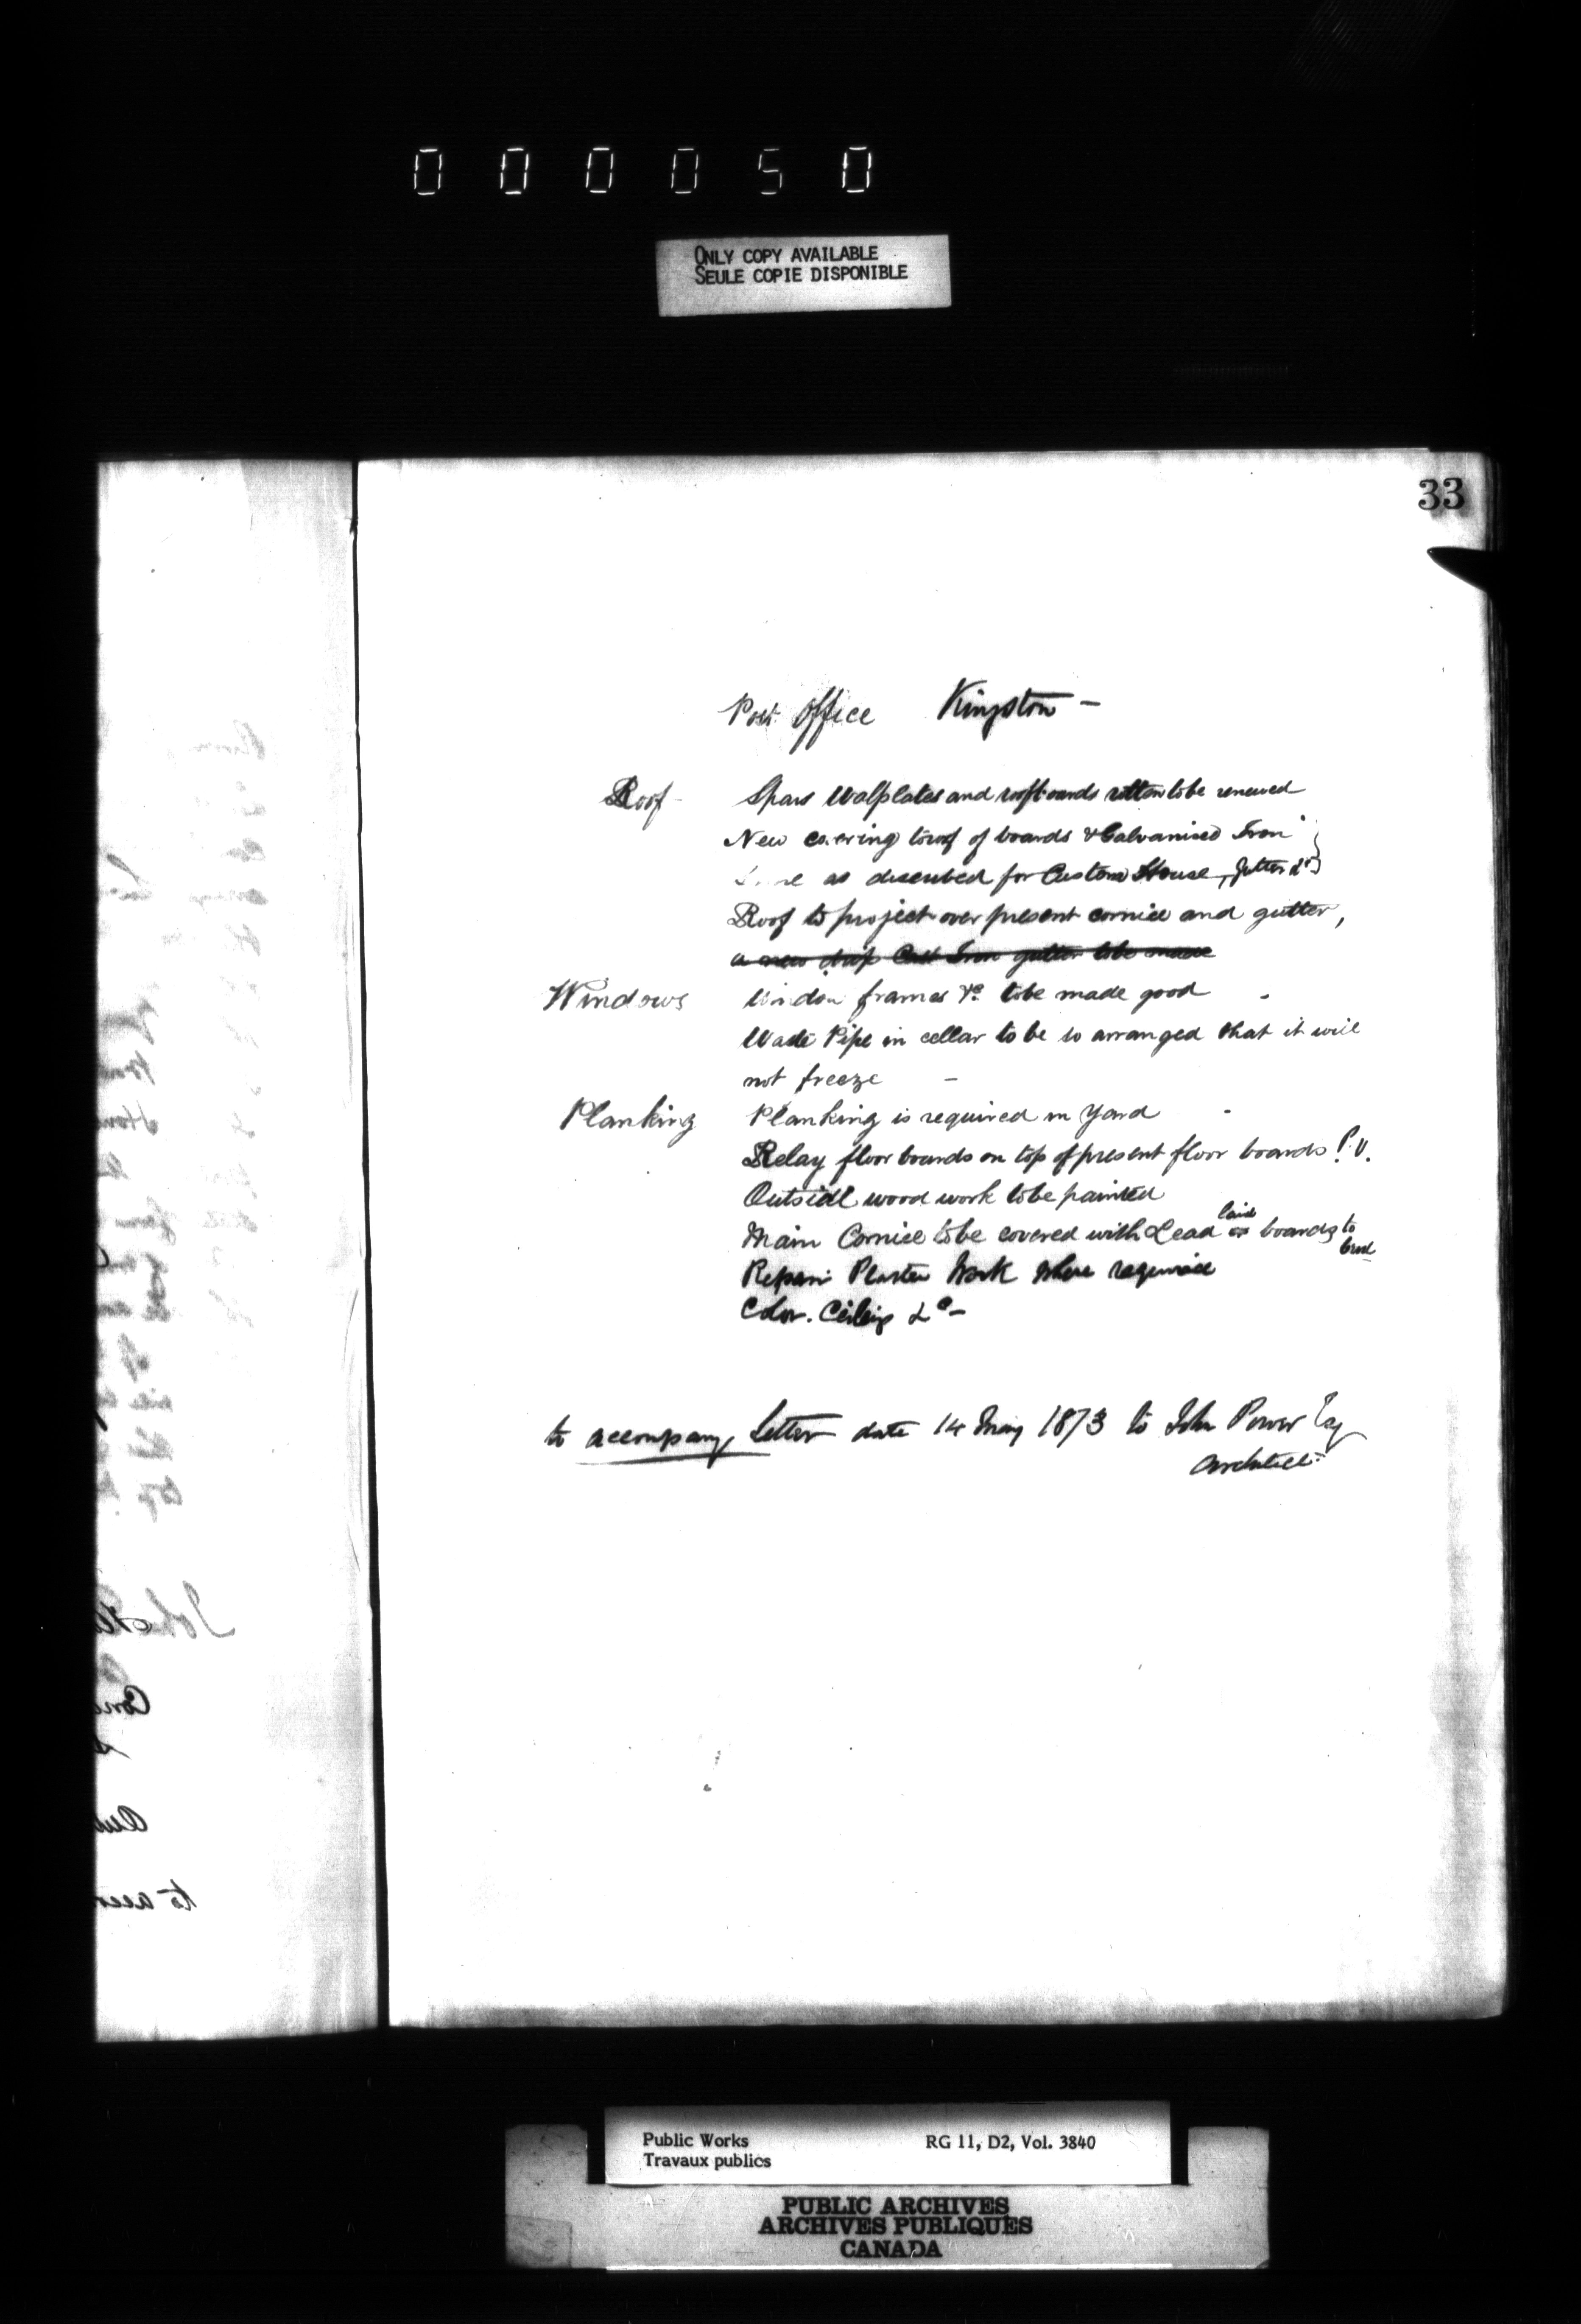 000050
ONLY COPY AVAILABLE
SEULE COPIE DISPONIBLE
33
Post Office Kingston —
Roof - Spars Walplates and roofboards rotten to be renewed
New covering to roof of boards & Galvanised Iron
as described for Custom House, gutter &c
Roof to project over present cornice and gutter,
a new drip Cast Iron gutter to be made
Windows Window frames &c to be made good -
Waste Pipe in cellar to be so arranged that it will
not freeze —
Planking Planking is required in Yard -
Relay floor boards on top of present floor boards P.O.
Outside wood work to be painted
Main Cornice to be covered with Lead laid on boards to
Repair Plaster Work where required
Color. Ceilings &c —
to accompany letter date 14 May 1873 to John Power Esq
Architect
John
to accom
Public Works RG 11, D2, Vol. 3840
Travaux publics
PUBLIC ARCHIVES
ARCHIVES PUBLIQUES
CANADA